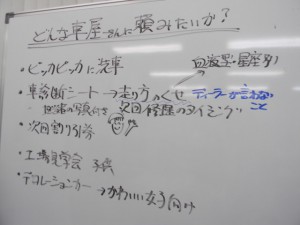 どんな車屋さんに頼みたいか?
血液型・星座別
・ピッカピッカに洗車
・車診断シート→走り方のくせ ディーラーが言わない
こと
次回修理のタイミング
・次回割り引券
・工場見学会
・デコレーションカー→かわいい女子向け